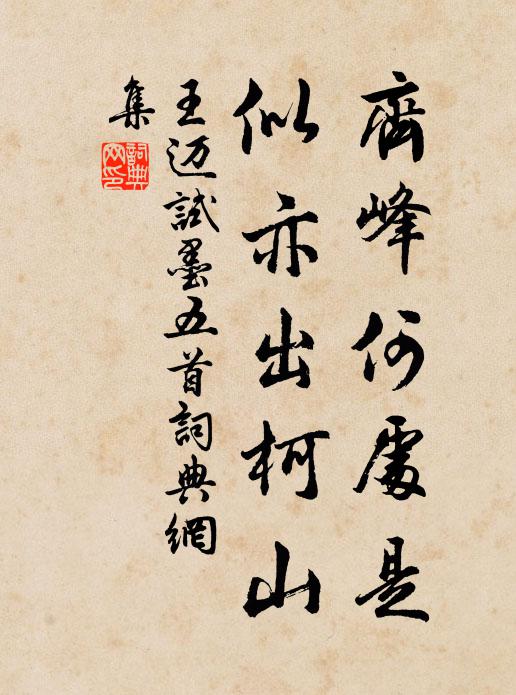 齊峰何處是
似亦出柯山
王迈試墨五首詞典網
集
詞典網印